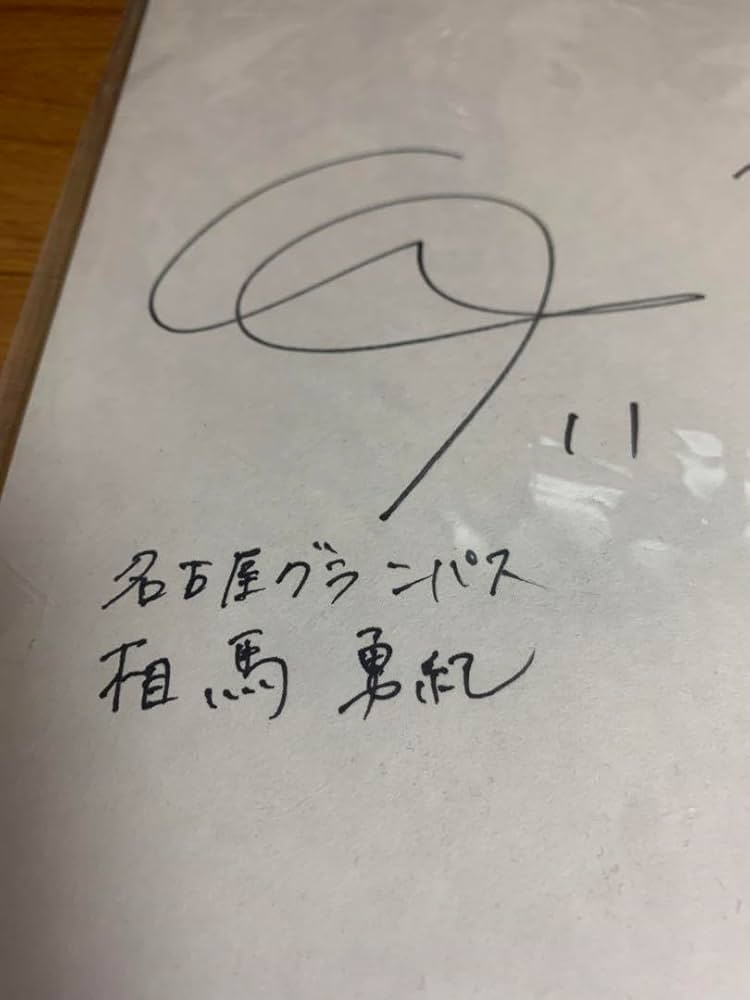 11
名古屋グランパス
相馬 勇紀